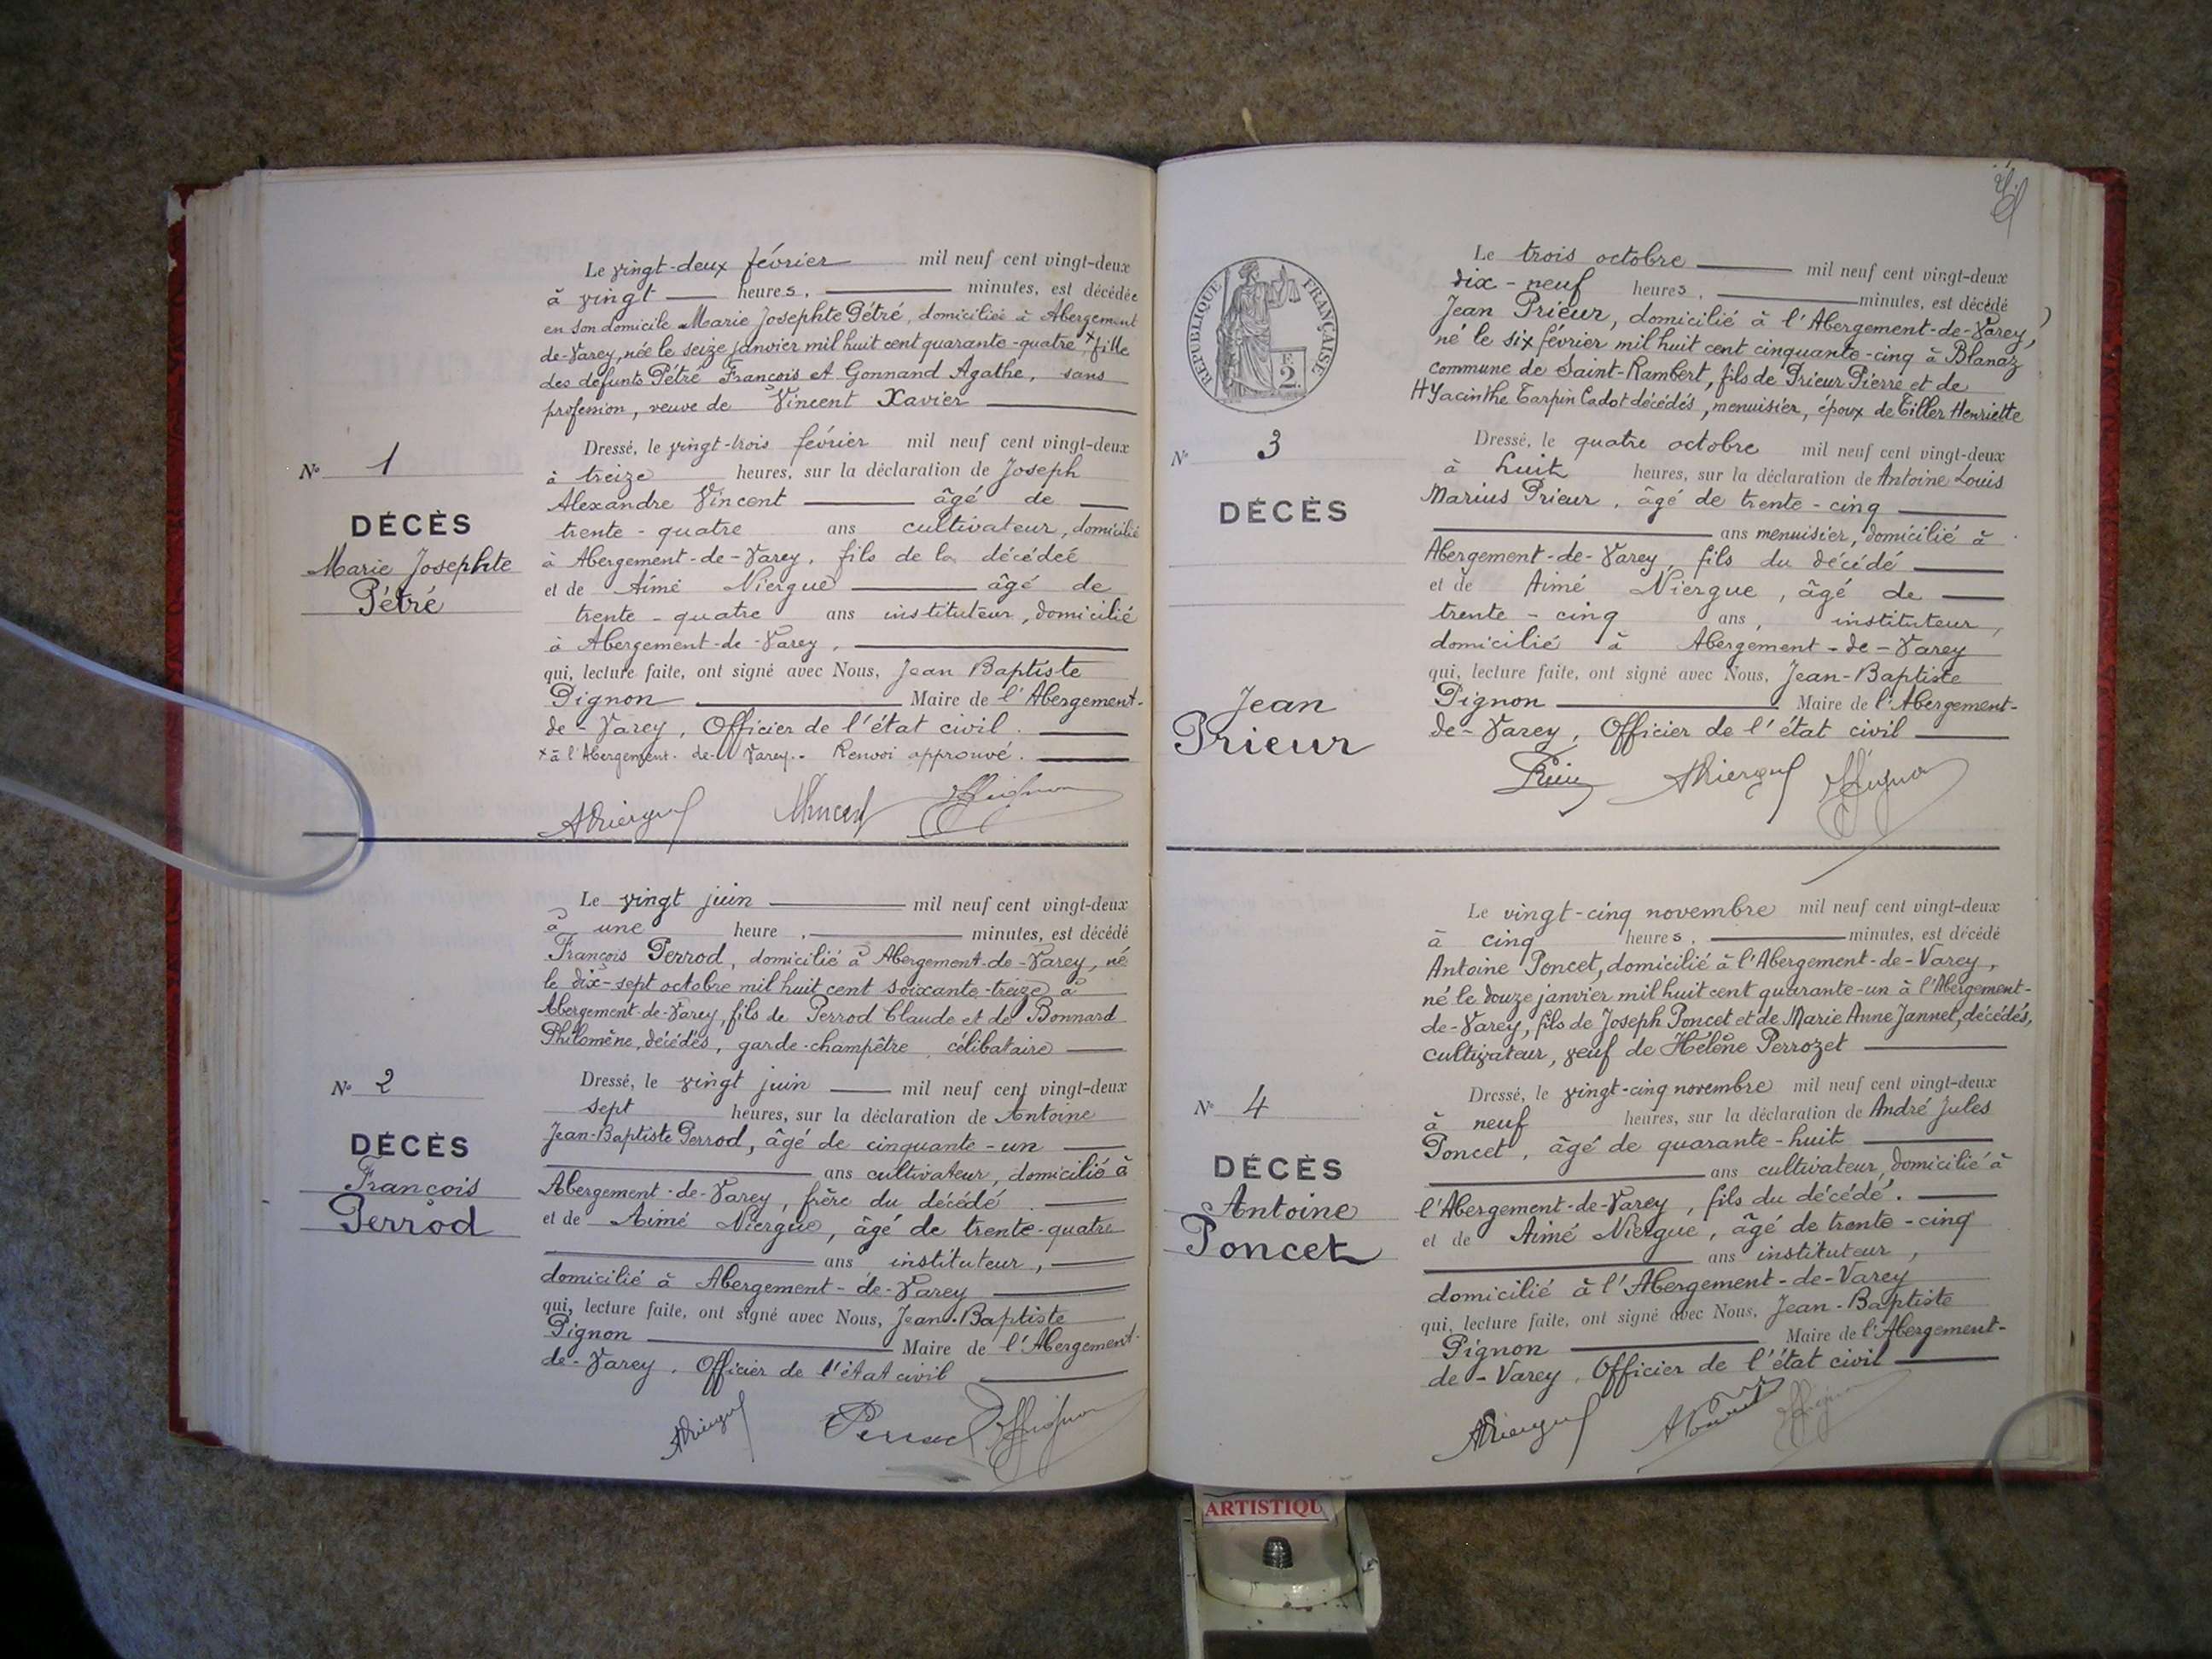 Le vingt-deux février mil neuf cent vingt-deux
à vingt heures, minutes, est décédée
en son domicile Marie Josephte Pétré, domiciliée à Abergement
de-Varey, née le seize janvier mil huit cent quarante-quatre, x fille
des défunts Pétré François et Gonnand Agathe, sans
profession, veuve de Vincent Xavier
N° 1
DÉCÈS
Marie Josephte
Pétré
Dressé, le vingt-trois février mil neuf cent vingt-deux
à treize heures, sur la déclaration de Joseph
Alexandre Vincent âgé de
trente-quatre ans cultivateur, domicilié
à Abergement-de-Varey, fils de la décédée
et de Aimé Niergue âgé de
trente-quatre ans instituteur, domicilié
à Abergement-de-Varey,
qui, lecture faite, ont signé avec Nous, Jean Baptiste
Pignon Maire de l'Abergement-
de-Varey, Officier de l'état civil.
x à l'Abergement-de-Varey.- Renvoi approuvé.
ANiergue Vincent Pignon
Le vingt juin mil neuf cent vingt-deux
à une heure, minutes, est décédé
François Perrod, domicilié à Abergement-de-Varey, né
le dix-sept octobre mil huit cent soixante-treize à
Abergement-de-Varey, fils de Perrod Claude et de Bonnard
Philomène, décédés, garde-champêtre, célibataire
N° 2
DÉCÈS
François
Perrod
Dressé, le vingt juin mil neuf cent vingt-deux
sept heures, sur la déclaration de Antoine
Jean-Baptiste Perrod, âgé de cinquante-un
ans cultivateur, domicilié à
Abergement-de-Varey, frère du décédé
et de Aimé Niergue, âgé de trente-quatre
ans instituteur,
domicilié à Abergement-de-Varey
qui, lecture faite, ont signé avec Nous, Jean-Baptiste
Pignon Maire de l'Abergement-
de-Varey, Officier de l'état civil
ANiergue Perrod Pignon
RÉPUBLIQUE FRANÇAISE
F.
2.
Le trois octobre mil neuf cent vingt-deux
dix-neuf heures, minutes, est décédé
Jean Prieur, domicilié à l'Abergement-de-Varey,
né le six février mil huit cent cinquante-cinq à Blanaz
commune de Saint-Rambert, fils de Prieur Pierre et de
Hyacinthe Tarpin Cadot décédés, menuisier, époux de Tiller Henriette
N° 3
DÉCÈS
Jean
Prieur
Dressé, le quatre octobre mil neuf cent vingt-deux
à huit heures, sur la déclaration de Antoine Louis
Marius Prieur, âgé de trente-cinq
ans menuisier, domicilié à
Abergement-de-Varey, fils du décédé
et de Aimé Niergue, âgé de
trente-cinq ans, instituteur,
domicilié à Abergement-de-Varey
qui, lecture faite, ont signé avec Nous, Jean-Baptiste
Pignon Maire de l'Abergement-
de-Varey, Officier de l'état civil
Prieur ANiergue Pignon
Le vingt-cinq novembre mil neuf cent vingt-deux
à cinq heures, minutes, est décédé
Antoine Poncet, domicilié à l'Abergement-de-Varey,
né le douze janvier mil huit cent quarante-un à l'Abergement-
de-Varey, fils de Joseph Poncet et de Marie Anne Jannel, décédés,
cultivateur, veuf de Hélène Perrozet
N° 4
DÉCÈS
Antoine
Poncet
Dressé, le vingt-cinq novembre mil neuf cent vingt-deux
à neuf heures, sur la déclaration de André Jules
Poncet, âgé de quarante-huit
ans cultivateur, domicilié à
l'Abergement-de-Varey, fils du décédé.
et de Aimé Niergue, âgé de trente-cinq
ans instituteur,
domicilié à l'Abergement-de-Varey
qui, lecture faite, ont signé avec Nous, Jean-Baptiste
Pignon Maire de l'Abergement-
de-Varey, Officier de l'état civil
ANiergue APoncet Pignon
ARTISTIQU